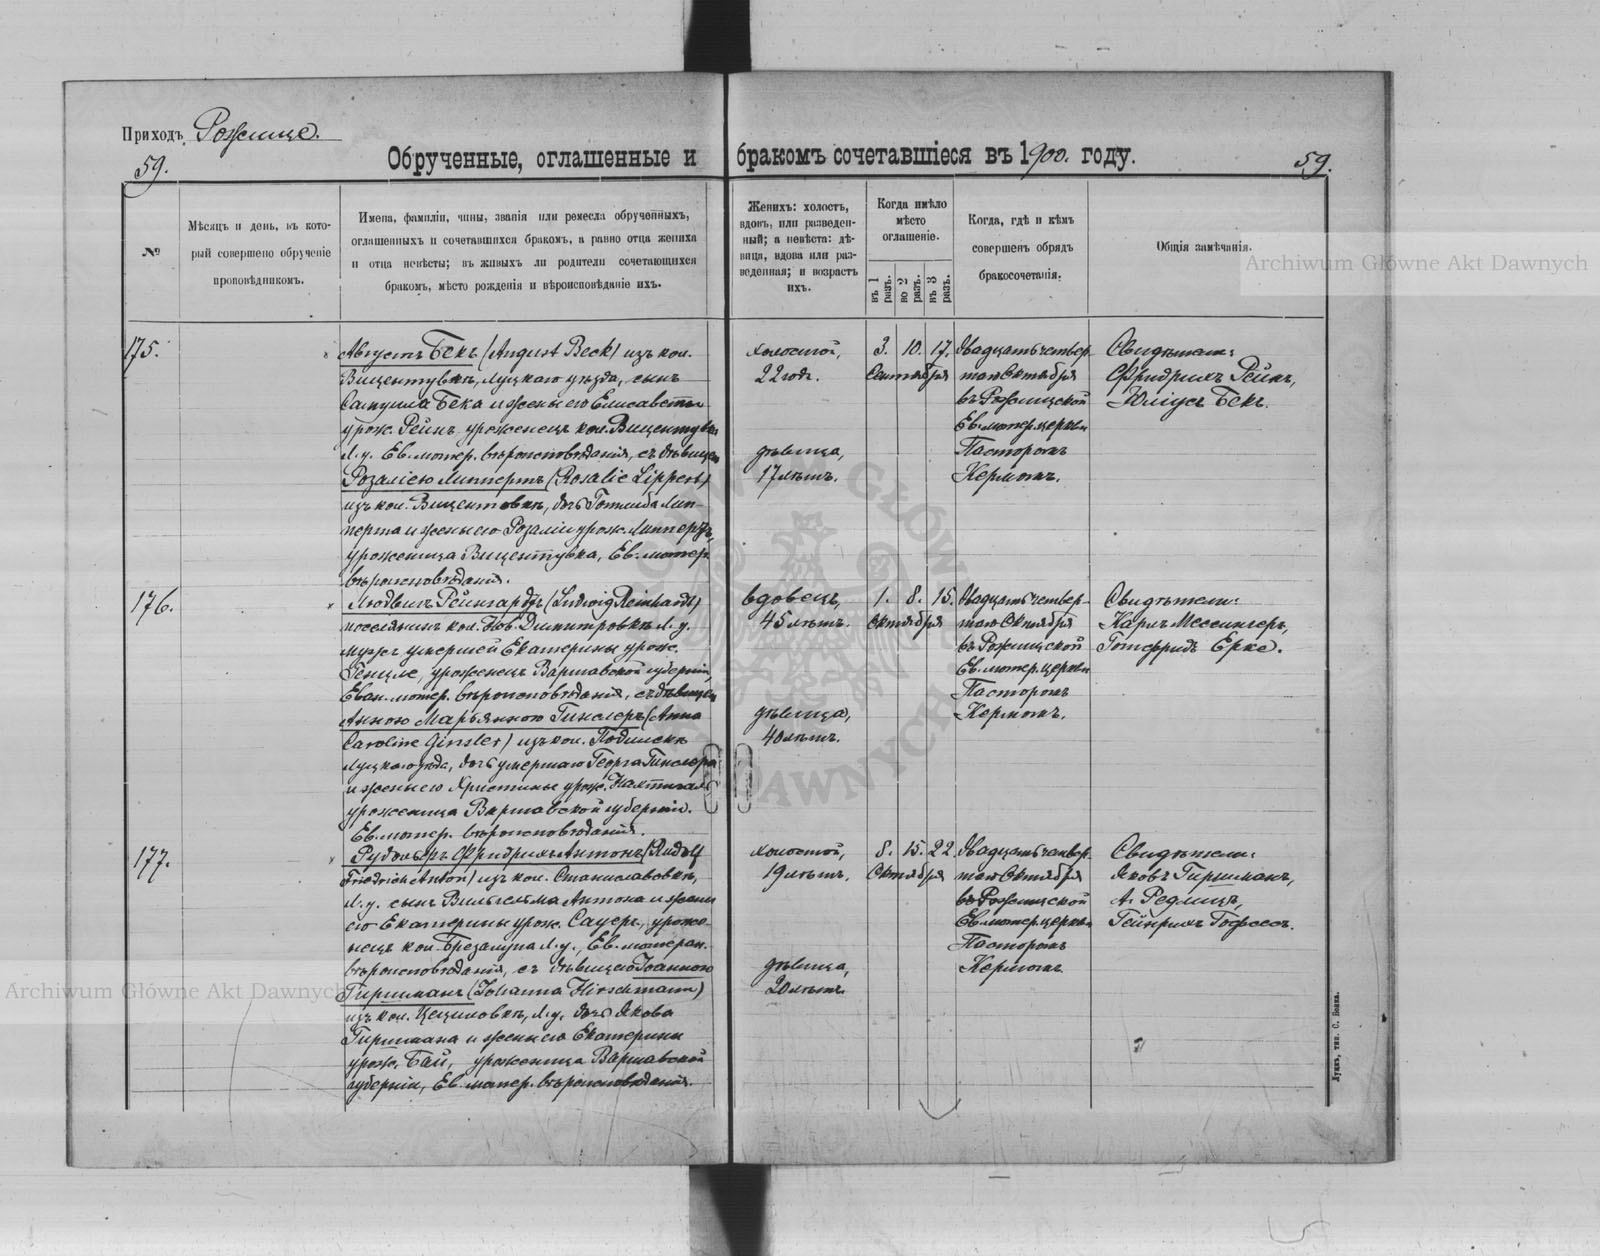 Приходъ Рожище.
59.
Обрученные, оглашенные и бракомъ сочетавшіеся въ 1900. году.
59.
№
Мѣсяцъ и день, въ кото-
рый совершено обрученіе
проповѣдникомъ.
Имена, фамиліи, чины, званія или ремесла обрученныхъ,
оглашенныхъ и сочетавшихся бракомъ, а равно отца жениха
и отца невѣсты; въ живыхъ ли родители сочетающихся
бракомъ, мѣсто рожденія и вѣроисповѣданіе ихъ.
Женихъ: холостъ,
вдовъ, или разведен-
ный; а невѣста: дѣ-
вица, вдова или раз-
веденная; и возрастъ
ихъ.
Когда имѣло
мѣсто
оглашеніе.
въ 1 разъ.
во 2 разъ.
въ 3 разъ.
Когда, гдѣ и кѣмъ
совершенъ обрядъ
бракосочетанія.
Общія замѣчанія.
Archiwum Główne Akt Dawnych
175.
Августъ Бекъ (August Beck) изъ кол.
Вицентувкѣ, Луцкаго уѣзда, сынъ
Самуила Бека и жены его Елисаветы
урож. Рейнъ уроженецъ кол. Вицентувка
Л.у. Ев. лютер. вѣроисповѣданія, съ дѣвицею
Розаліею Липпертъ (Rosalie Lippert)
изъ кол. Вицентовкѣ, дочь Готлиба Лип-
перта и жены его Розаліи урож. Липпертъ,
уроженица Вицентувка, Ев. лютер.
вѣроисповѣданія.
холостой,
22 год.
дѣвица,
17 лѣтъ.
3. 10. 17.
Сентября
Двадцать четвер-
таго Октября
въ Рожищской
Ев. лютер. церкви
Пасторомъ
Кермомъ.
Свидѣтели:
Фридрихъ Рейнъ,
Юліусъ Бекъ.
176.
Людвигъ Рейнгардтъ (Ludwig Reinhardt)
поселянинъ кол. Нов. Дмитровкѣ Л.у.
мужъ умершей Екатерины урож.
Генцле, уроженецъ Варшавской губерніи,
Еван. лютер. вѣроисповѣданія, съ дѣвицею
Анною Марьянною Гинслеръ (Anna
Caroline Ginsler) изъ кол.
Луцкаго уѣзда, дочь умершаго Георга Гинслера
и жены его Христины урож.
уроженица Варшавской губерніи.
Ев. лютер. вѣроисповѣданія.
вдовецъ,
45 лѣтъ.
дѣвица,
40 лѣтъ.
1. 8. 15.
Октября
Двадцать четвер-
таго Октября
въ Рожищской
Ев. лютер. церкви
Пасторомъ
Кермомъ.
Свидѣтели:
Карлъ Мессингеръ,
Готфридъ Ерке.
177.
Рудольфъ Фридрихъ Антонъ (Rudolf
Friedrich Anton) изъ кол. Станиславовкѣ,
Л.у. сынъ Вильгельма Антона и жены
его Екатерины урож. Сауеръ, уроже-
нецъ кол. Брезалупа Л.у., Ев. лютеран.
вѣроисповѣданія, съ дѣвицею Іоанною
Гиршманъ (Johanna Hirschmann)
изъ кол. Цециловкѣ, Л.у. дочь Якова
Гиршмана и жены его Екатерины
урож. Бай, уроженица Варшавской
губерніи, Ев. лютер. вѣроисповѣданія.
холостой,
19 лѣтъ.
дѣвица,
20 лѣтъ.
8. 15. 22.
Октября
Двадцать четвер-
таго Октября
въ Рожищской
Ев. лютер. церкви
Пасторомъ
Кермомъ
Свидѣтели:
Яковъ Гиршманъ,
А. Редлицъ,
Гейнрихъ
Archiwum Główne Akt Dawnych
Луцкъ, тип. С. Бокка.